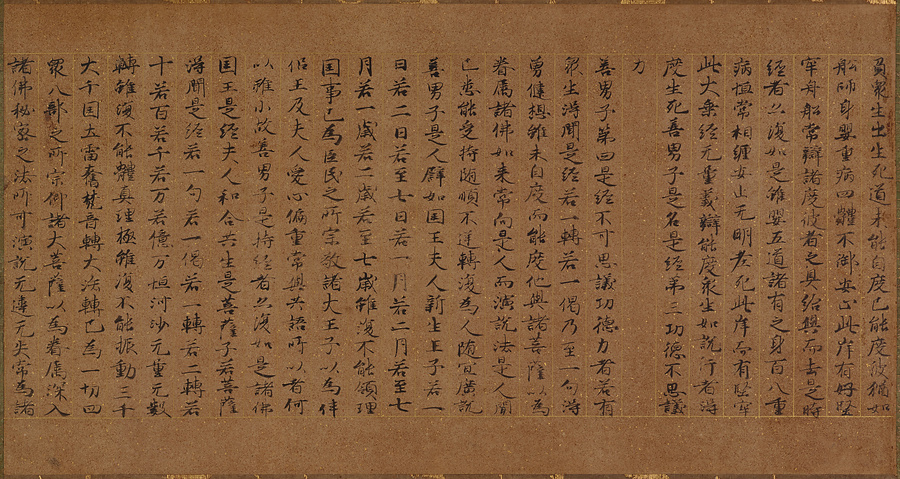 負衆生出生死道未能自度已能度彼猶如
船師身嬰重病四體不御安止此岸有好堅
牢舟船常辦諸度彼者之具給與而去是時
經者亦復如是雖嬰五道諸有之身百八重
病恒常相纏安止无明老死此岸而有堅牢
此大乗經无量義辦能度衆生如說行者得
度生死善男子是名是經第三功德不思議
力
善男子第四是經不可思議功德力者若有
衆生得聞是經若一轉若一偈乃至一句得
勇健想雖未自度而能度他與諸菩薩以為
眷属諸佛如来常向是人而演說法是人聞
已悉能受持随順不逆轉復為人随宜廣說
善男子是人譬如国王夫人新生王子若一
日若二日若至七日若一月若二月若至七
月若一歲若二歲若至七歲雖復不能領理
国事已為臣民之所宗敬諸大王子以為伴
侶王及夫人愛心偏重常與共語所以者何
以稚小故善男子是持經者亦復如是諸佛
国王是經夫人和合共生是菩薩子若菩薩
得聞是經若一句若一偈若一轉若二轉若
十若百若千若万若億万恒河沙无量无數
轉雖復不能體真理極雖復不能振動三千
大千国土雷奮梵音轉大法轉已為一切四
衆八部之所宗仰諸大菩薩以為眷属深入
諸佛秘密之法所可演說无違无失常為諸